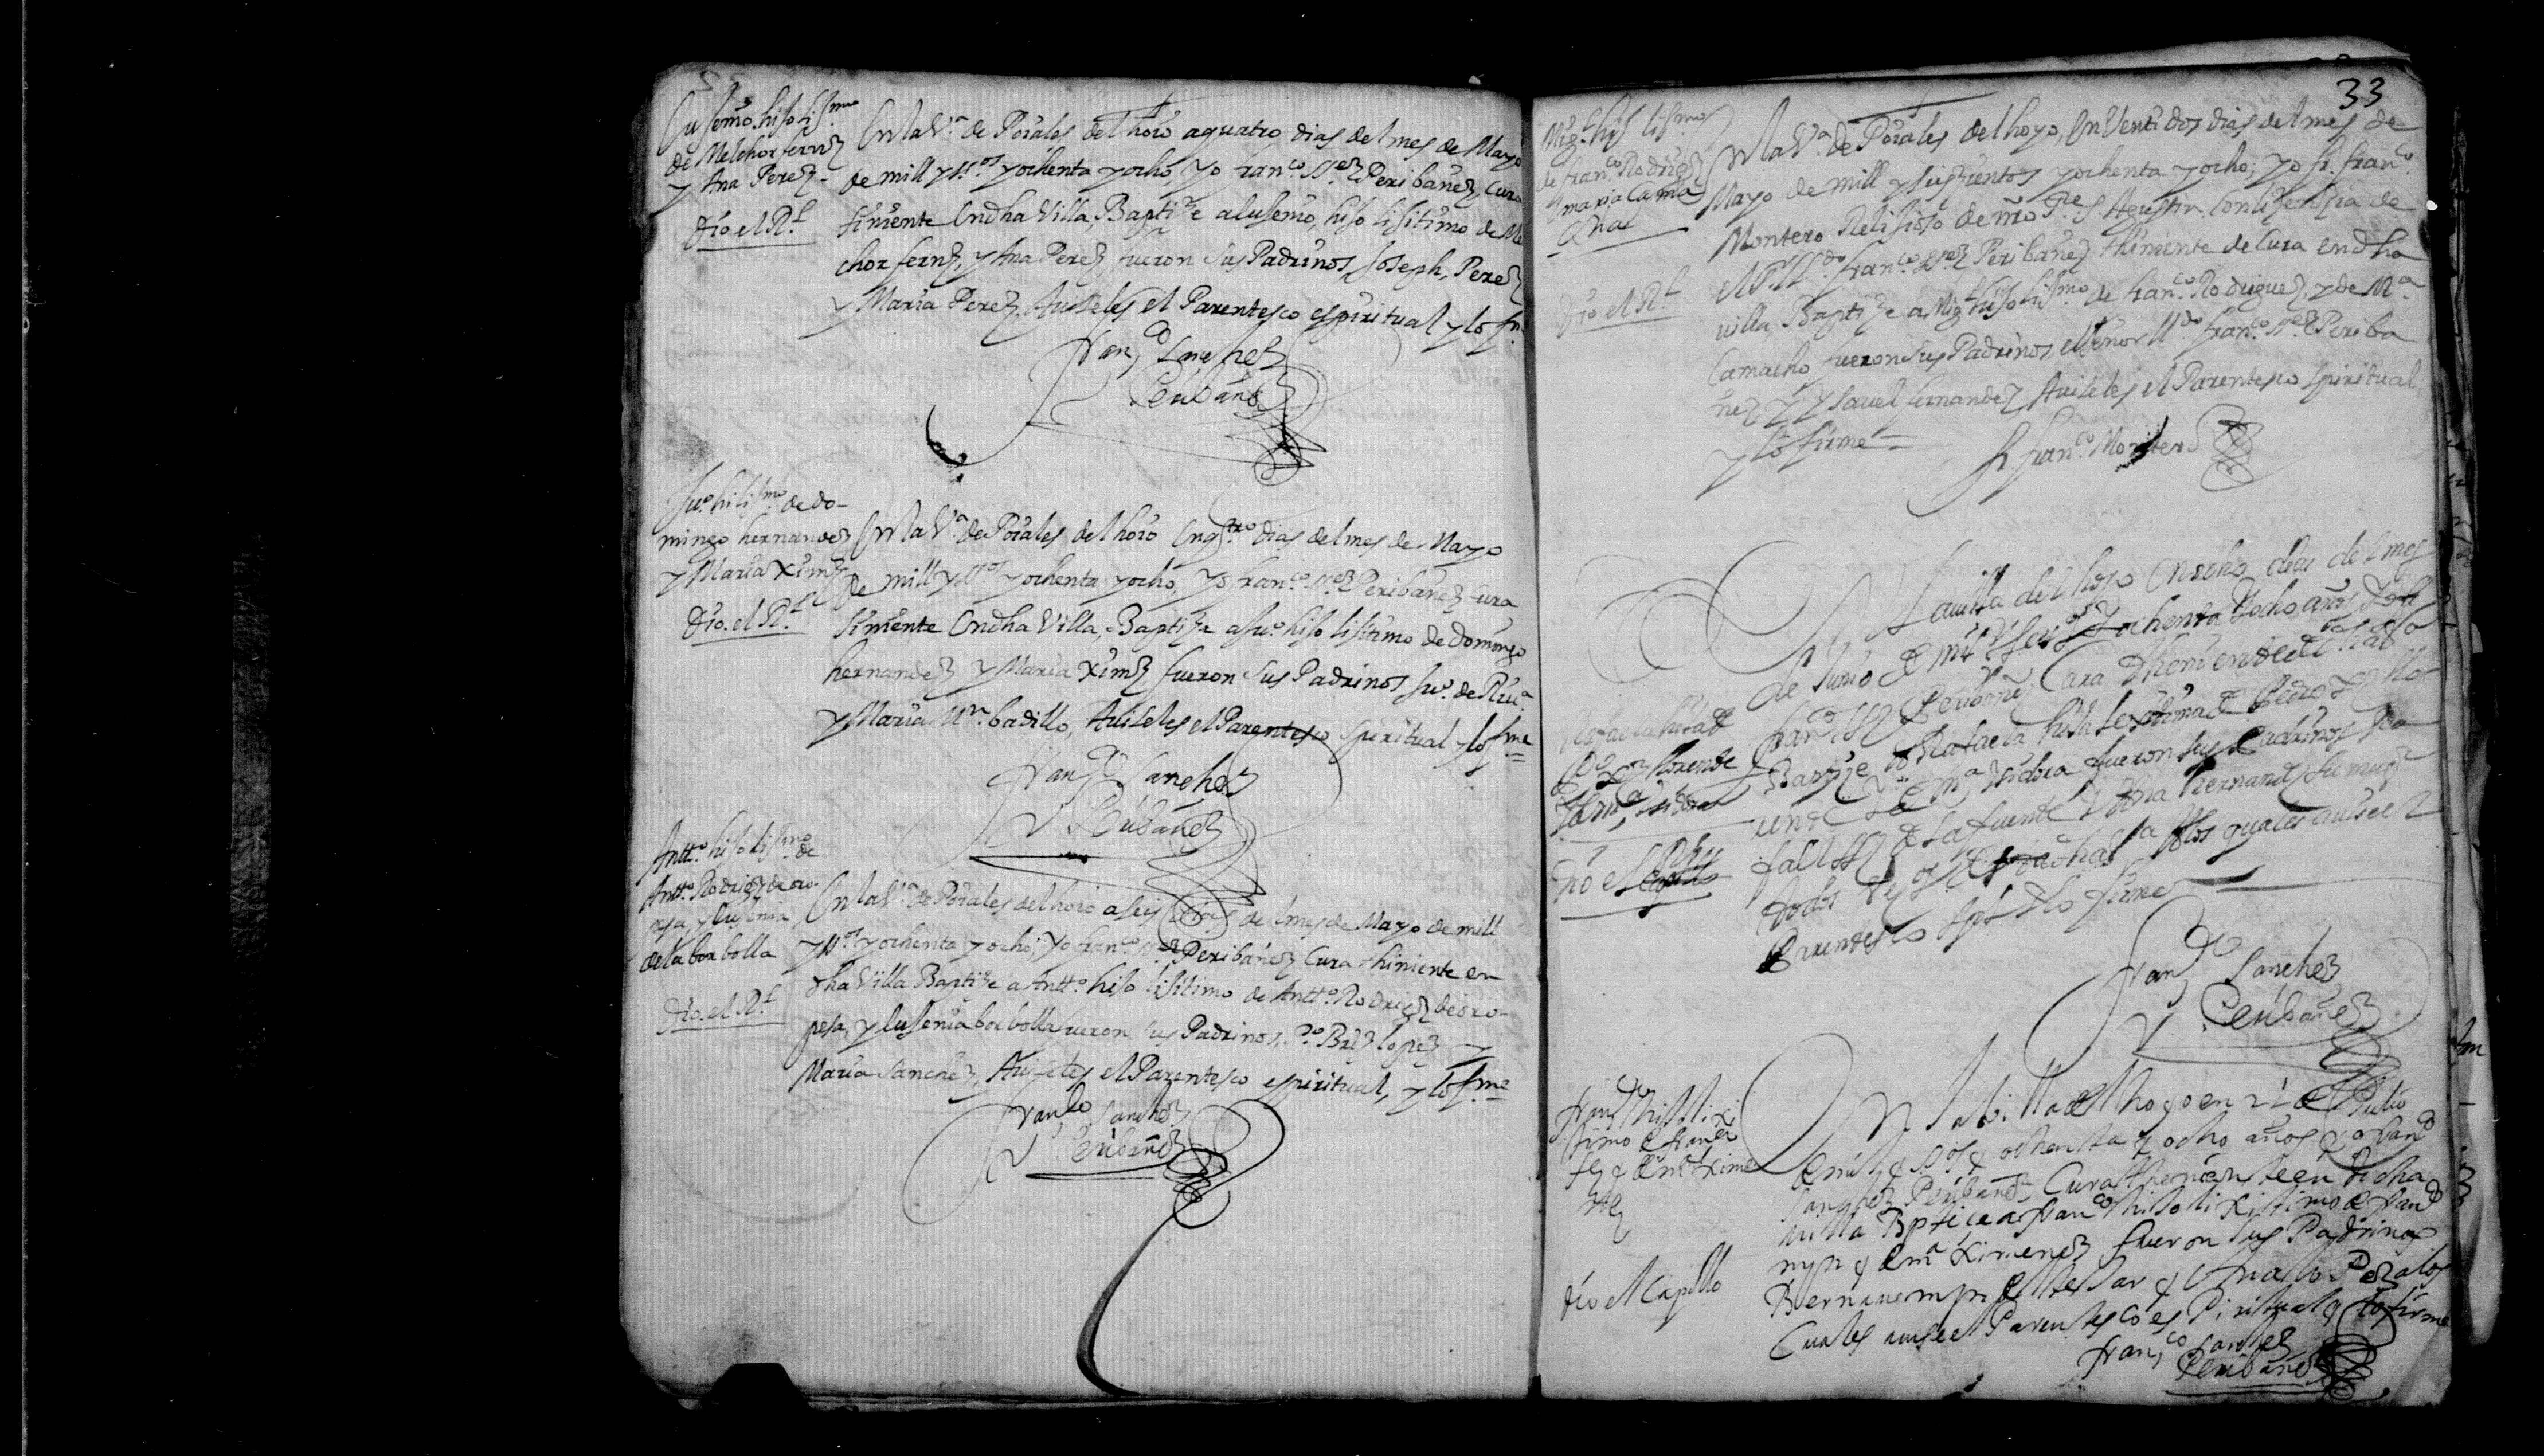 Eusenio hijo lixmo
de Melchor fernz
y Ana Perez
Dio el Rl
En la Va de Poiales del hoio a quatro dias del mes de Mayo
de mill y ss.os y ochenta y ocho, Yo Franco Ss.ez Peribañez Cura
tiniente en dha Villa, Baptize a Eusenio, hijo lisitimo de Mel
chor fernz, y Ana Perez, fueron sus Padrinos, Joseph, Perez
y Maria Perez, Auiseles el Parentesco espiritual y lo fir
Franco Sanchez
Peribañez
Juo hi lixmo de do-
mingo hernandez
y Maria Ximz
Dio el Rl
En la Va de Poiales del hoio en qtro dias del mes de Mayo
de mill y ss.os y ochenta y ocho, Yo Franco Ss.ez Peribañez Cura
tiniente en dha Villa, Baptize a Juo hijo lisitimo de Domingo
hernandez y Maria Ximz fueron sus Padrinos Juo de
y Maria badillo, Auiseles el Parentesco spiritual y lo fme
Franco Sanchez
Peribañez
Antto hijo lixmo de
Antto Rodrigz de oro-
pesa, y Eusenia
de la borbolla
Dio el Rl
En la Va de Poiales del hoio a seis dias del mes de Mayo de mill
y ss.os y ochenta y ocho; Yo Franco Ss.ez Peribañez Cura thiniente en
dha Villa Baptize a Antto hijo lisitimo de Antto Rodrigz de oro-
pesa, y Eusenia borbolla fueron sus Padrinos, Po lopez y
Maria Sanchez, Auiseles el Parentesco espiritual, y lo fme
Franco Sanchez
Peribañez
33
Migl hijo lixmo
de franco Rodriguez
maria Cama
cho
Dio el Rl
En la Va de Poiales del hoyo, en Venti dos dias del mes de
Mayo de mill y seiszientos y ochenta y ocho; yo fr. franco
Montero Relisioso de nro Pe S. Agustin, con lisensia de
el Sr Lldo franco Ss.ez Peribañez thiniente de Cura en dha
villa, Baptize a Migl hijo lixmo de franco Rodriguez, y de Ma
Camacho fueron sus Padrinos el señor Lldo franco Ss.ez Periba
ñez y Ysauel fernandez Auiseles el Parentesco spiritual,
y lo firme
fr. franco Montero
Rafaela hija de
Po
y de ma isidora
Dio el capillo
En la uilla del hoyo en ocho dias del mes
de Junio de mil y seisos y ochenta y ocho años Yo
Franco Ss.z Peribañez Cura theniente de dha Va
Baptize a Rafaela hija lexitima de Pedro
y de Ma isidora fueron sus Padrinos
de la fuente y Ana hernandz su muger
todos vezos de dha Va a los quales auise el
Parentesco spl y lo firme
Franco Sanchez
Peribañez
franco hijo lixi
timo de franco
y de ma Xime
nez
Dio el Capillo
En la villa del hoyo en 21 de Julio
de mil y ss.os y ochenta y ocho años yo franco
Sanchez Peribañez Cura theniente en dicha
villa Bptice a franco hijo lixitimo de franco
y de ma Ximenez fueron sus Padrinos
Bernaue y a los
Cuales auise el Parentesco es Piritual y lo firme
franco Sanchez
Peribañez